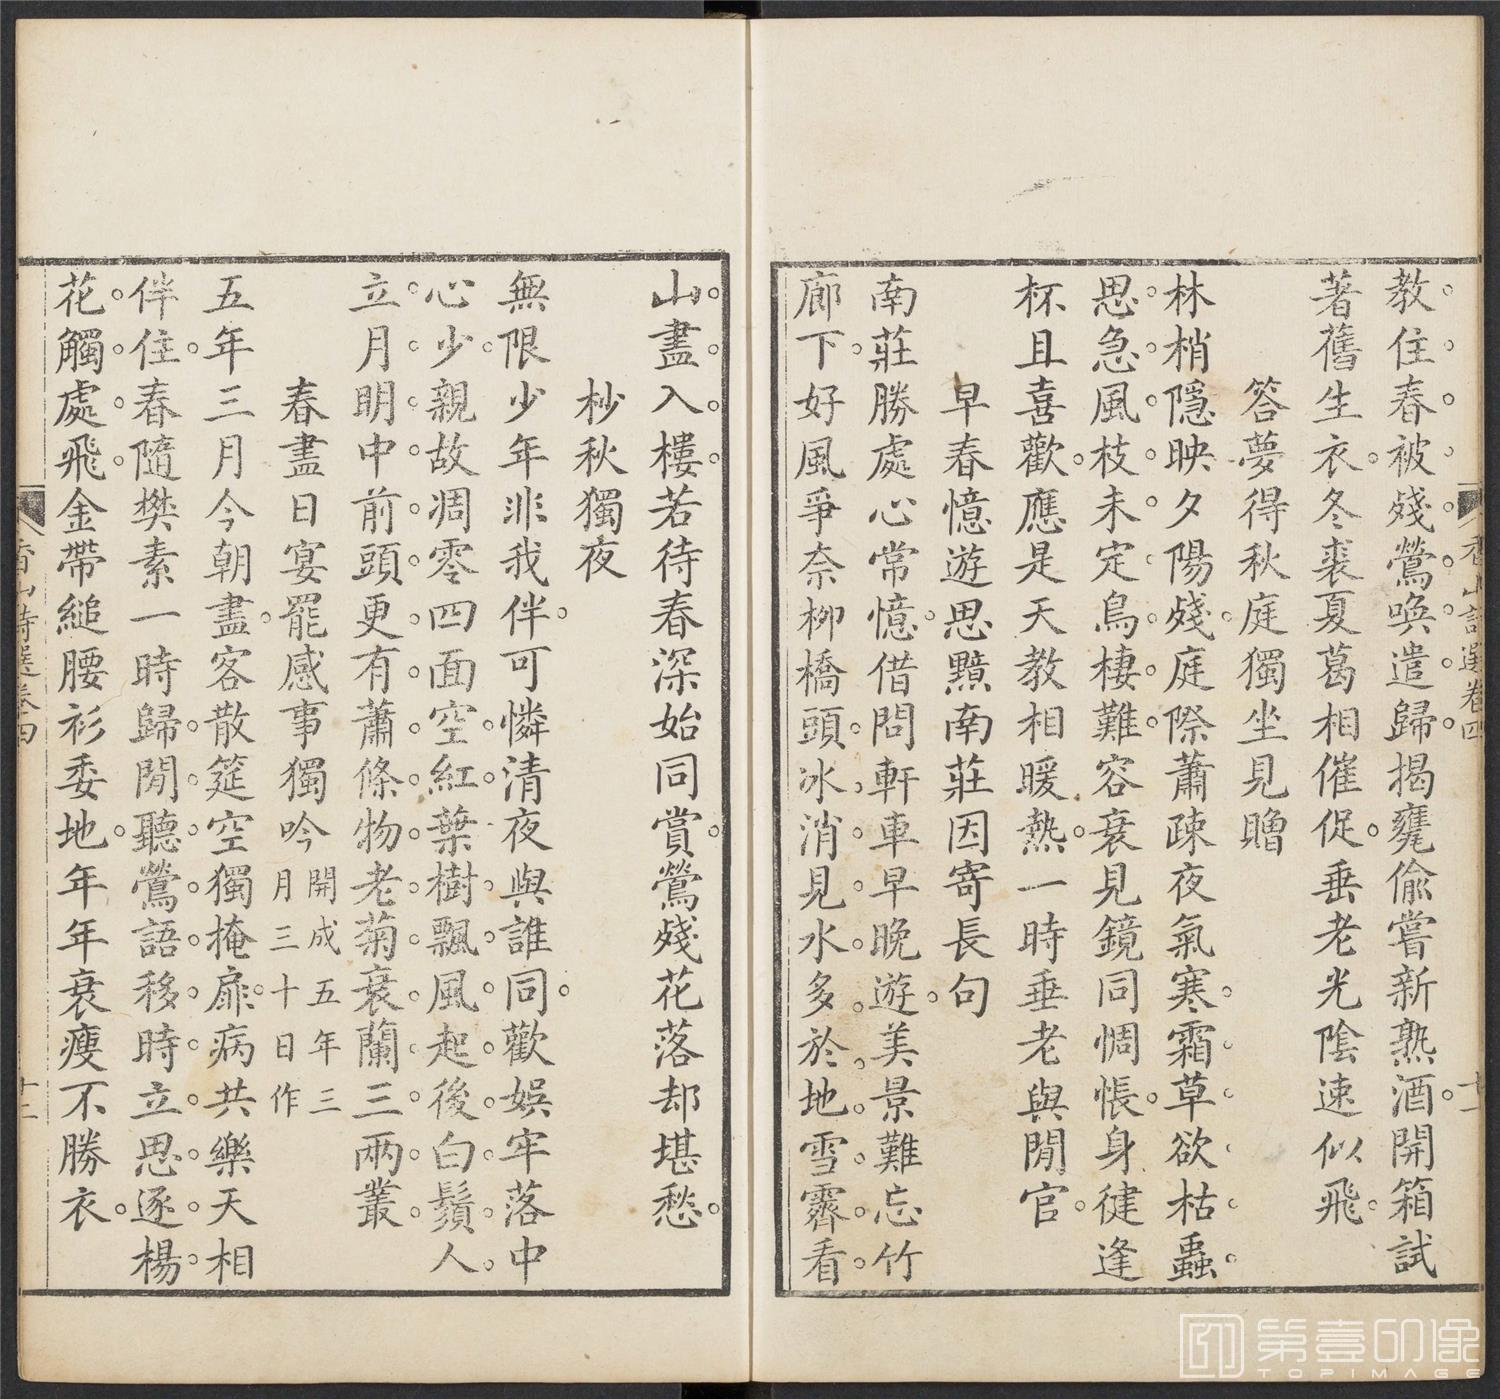 教住春被殘鶯喚遣歸揭甕偷嘗新熟酒開箱試
著舊生衣冬裘夏葛相催促垂老光陰速似飛
答夢得秋庭獨坐見贈
林梢隱映夕陽殘庭際蕭疎夜氣寒霜草欲枯蟲
思急風枝未定鳥棲難容衰見鏡同惆悵身健逢
杯且喜歡應是天教相暖熱一時垂老與閒官
早春憶遊思黯南莊因寄長句
南莊勝處心常憶借問軒車早晚遊美景難忘竹
廊下好風爭奈柳橋頭冰消見水多於地雪霽看
香山詩選卷四
十一
山盡入樓若待春深始同賞鶯殘花落却堪愁
杪秋獨夜
無限少年非我伴可憐清夜與誰同歡娛牢落中
心少親故凋零四面空紅葉樹飄風起後白鬚人
立月明中前頭更有蕭條物老菊衰蘭三兩叢
春盡日宴罷感事獨吟開成五年三
月三十日作
五年三月今朝盡客散筵空獨掩扉病共樂天相
伴住春隨樊素一時歸閒聽鶯語移時立思逐楊
花觸處飛金帶縋腰衫委地年年衰瘦不勝衣
香山詩選卷四
十二
第壹印像
TOPIMAGE